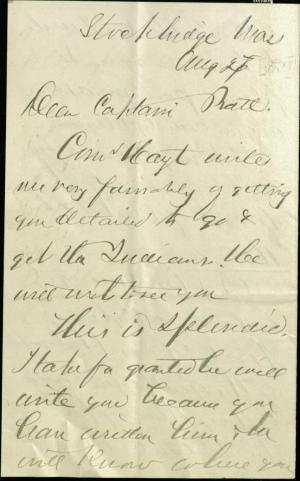 Stockbridge Mas
Aug 27
Dear Captain Pratt.
Comr Hayt writes
me very favorably of getting
you detailed to go &
get the Indians. He
will write to see you
This is splendid.
I take for granted he will
write you because you
have written him & he
will know where you